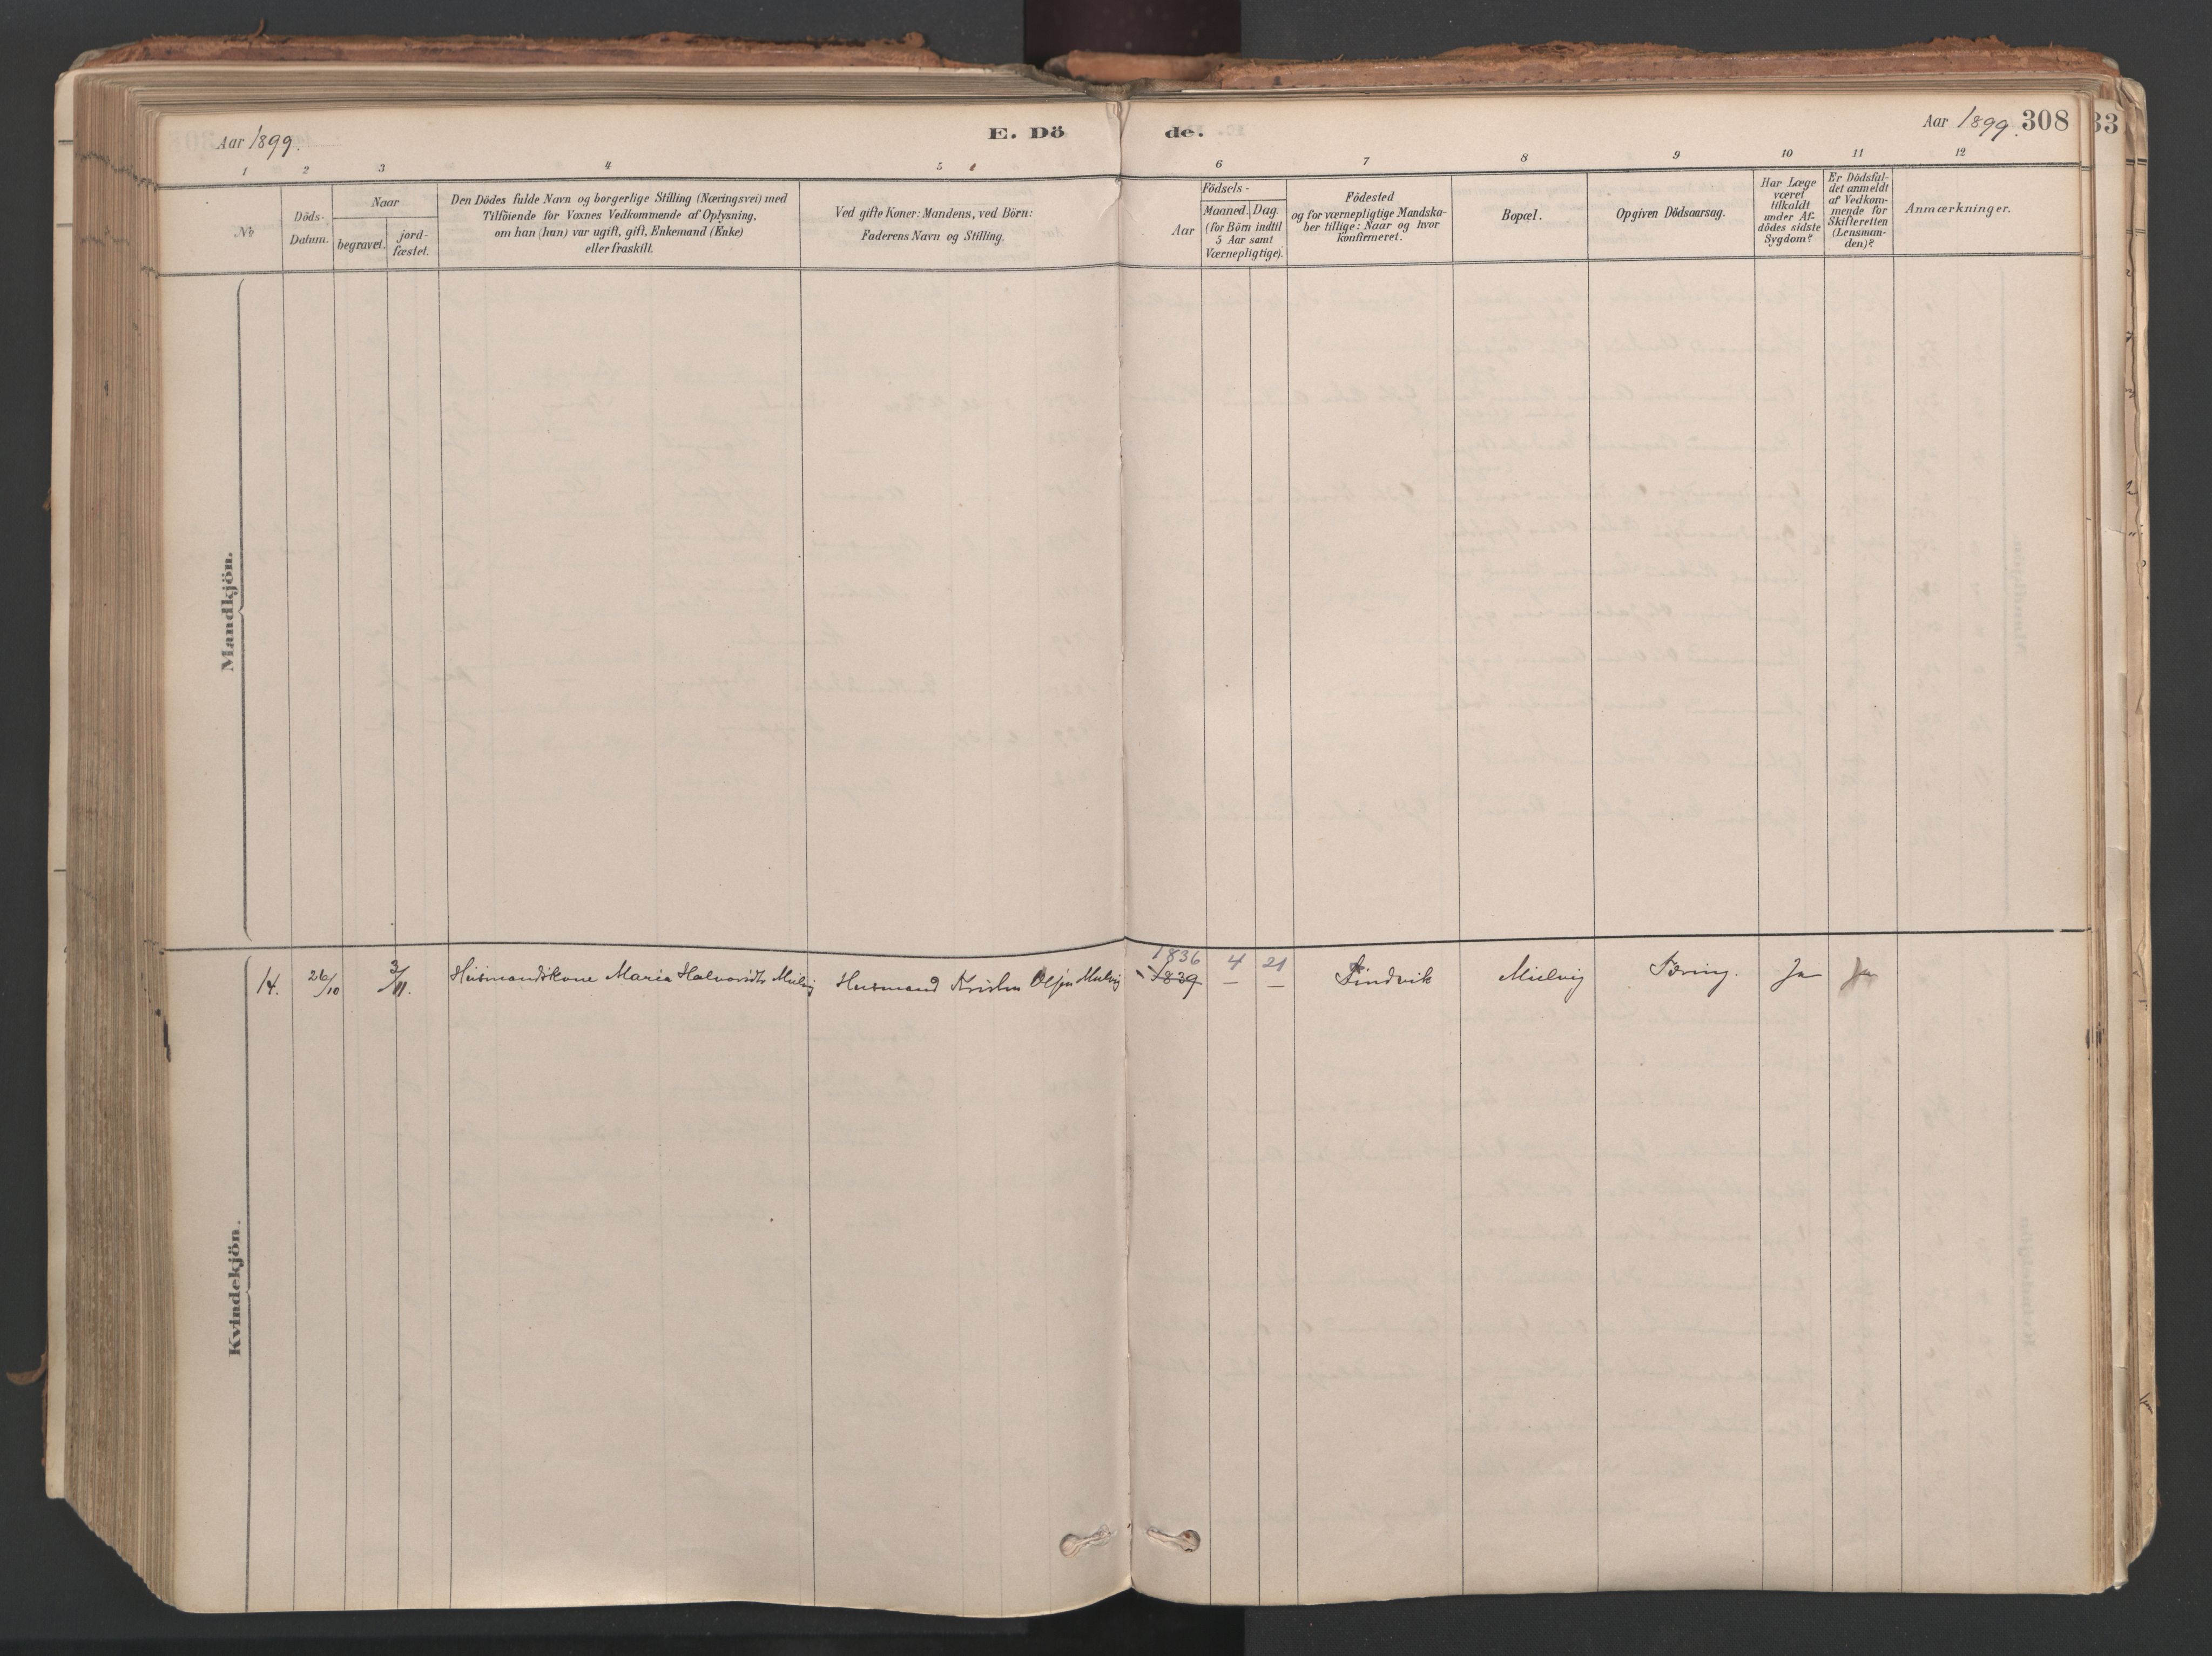 Aar 1899.
E. Dö
de.
Aar 1899.
308
33
1 2 3 4 5 6 7 8 9 10 11 12
No
Döds-
Datum.
Naar
begravet.
jord-
fæstet.
Den Dödes fulde Navn og borgerlige Stilling (Næringsvei) med
Tilföiende for Voxnes Vedkommende af Oplysning,
om han (hun) var ugift, gift, Enkemand (Enke)
eller fraskilt.
Ved gifte Koner: Mandens, ved Börn:
Faderens Navn og Stilling.
Födsels-
Aar
Maaned. Dag
(for Börn indtil
5 Aar samt
Værnepligtige).
Födested
og for værnepligtige Mandska-
ber tillige: Naar og hvor
konfirmeret.
Bopæl.
Opgiven Dödsaarsag.
Har Læge
været
tilkaldt
under Af-
dödes sidste
Sygdom?
Er Dödsfal-
det anmeldt
af Vedkom-
mende for
Skifteretten
(Lensman-
den)?
Anmærkninger.
Mandkjön.
1836 4 21
14. 26/10 3/11. Husmandskone Maria Halvorsdtr Mielvig Husmand Krishen Olsen Mielvig 1839 — — Sindvik Mielvig Tæring. Ja Ja
Kvindekjön.